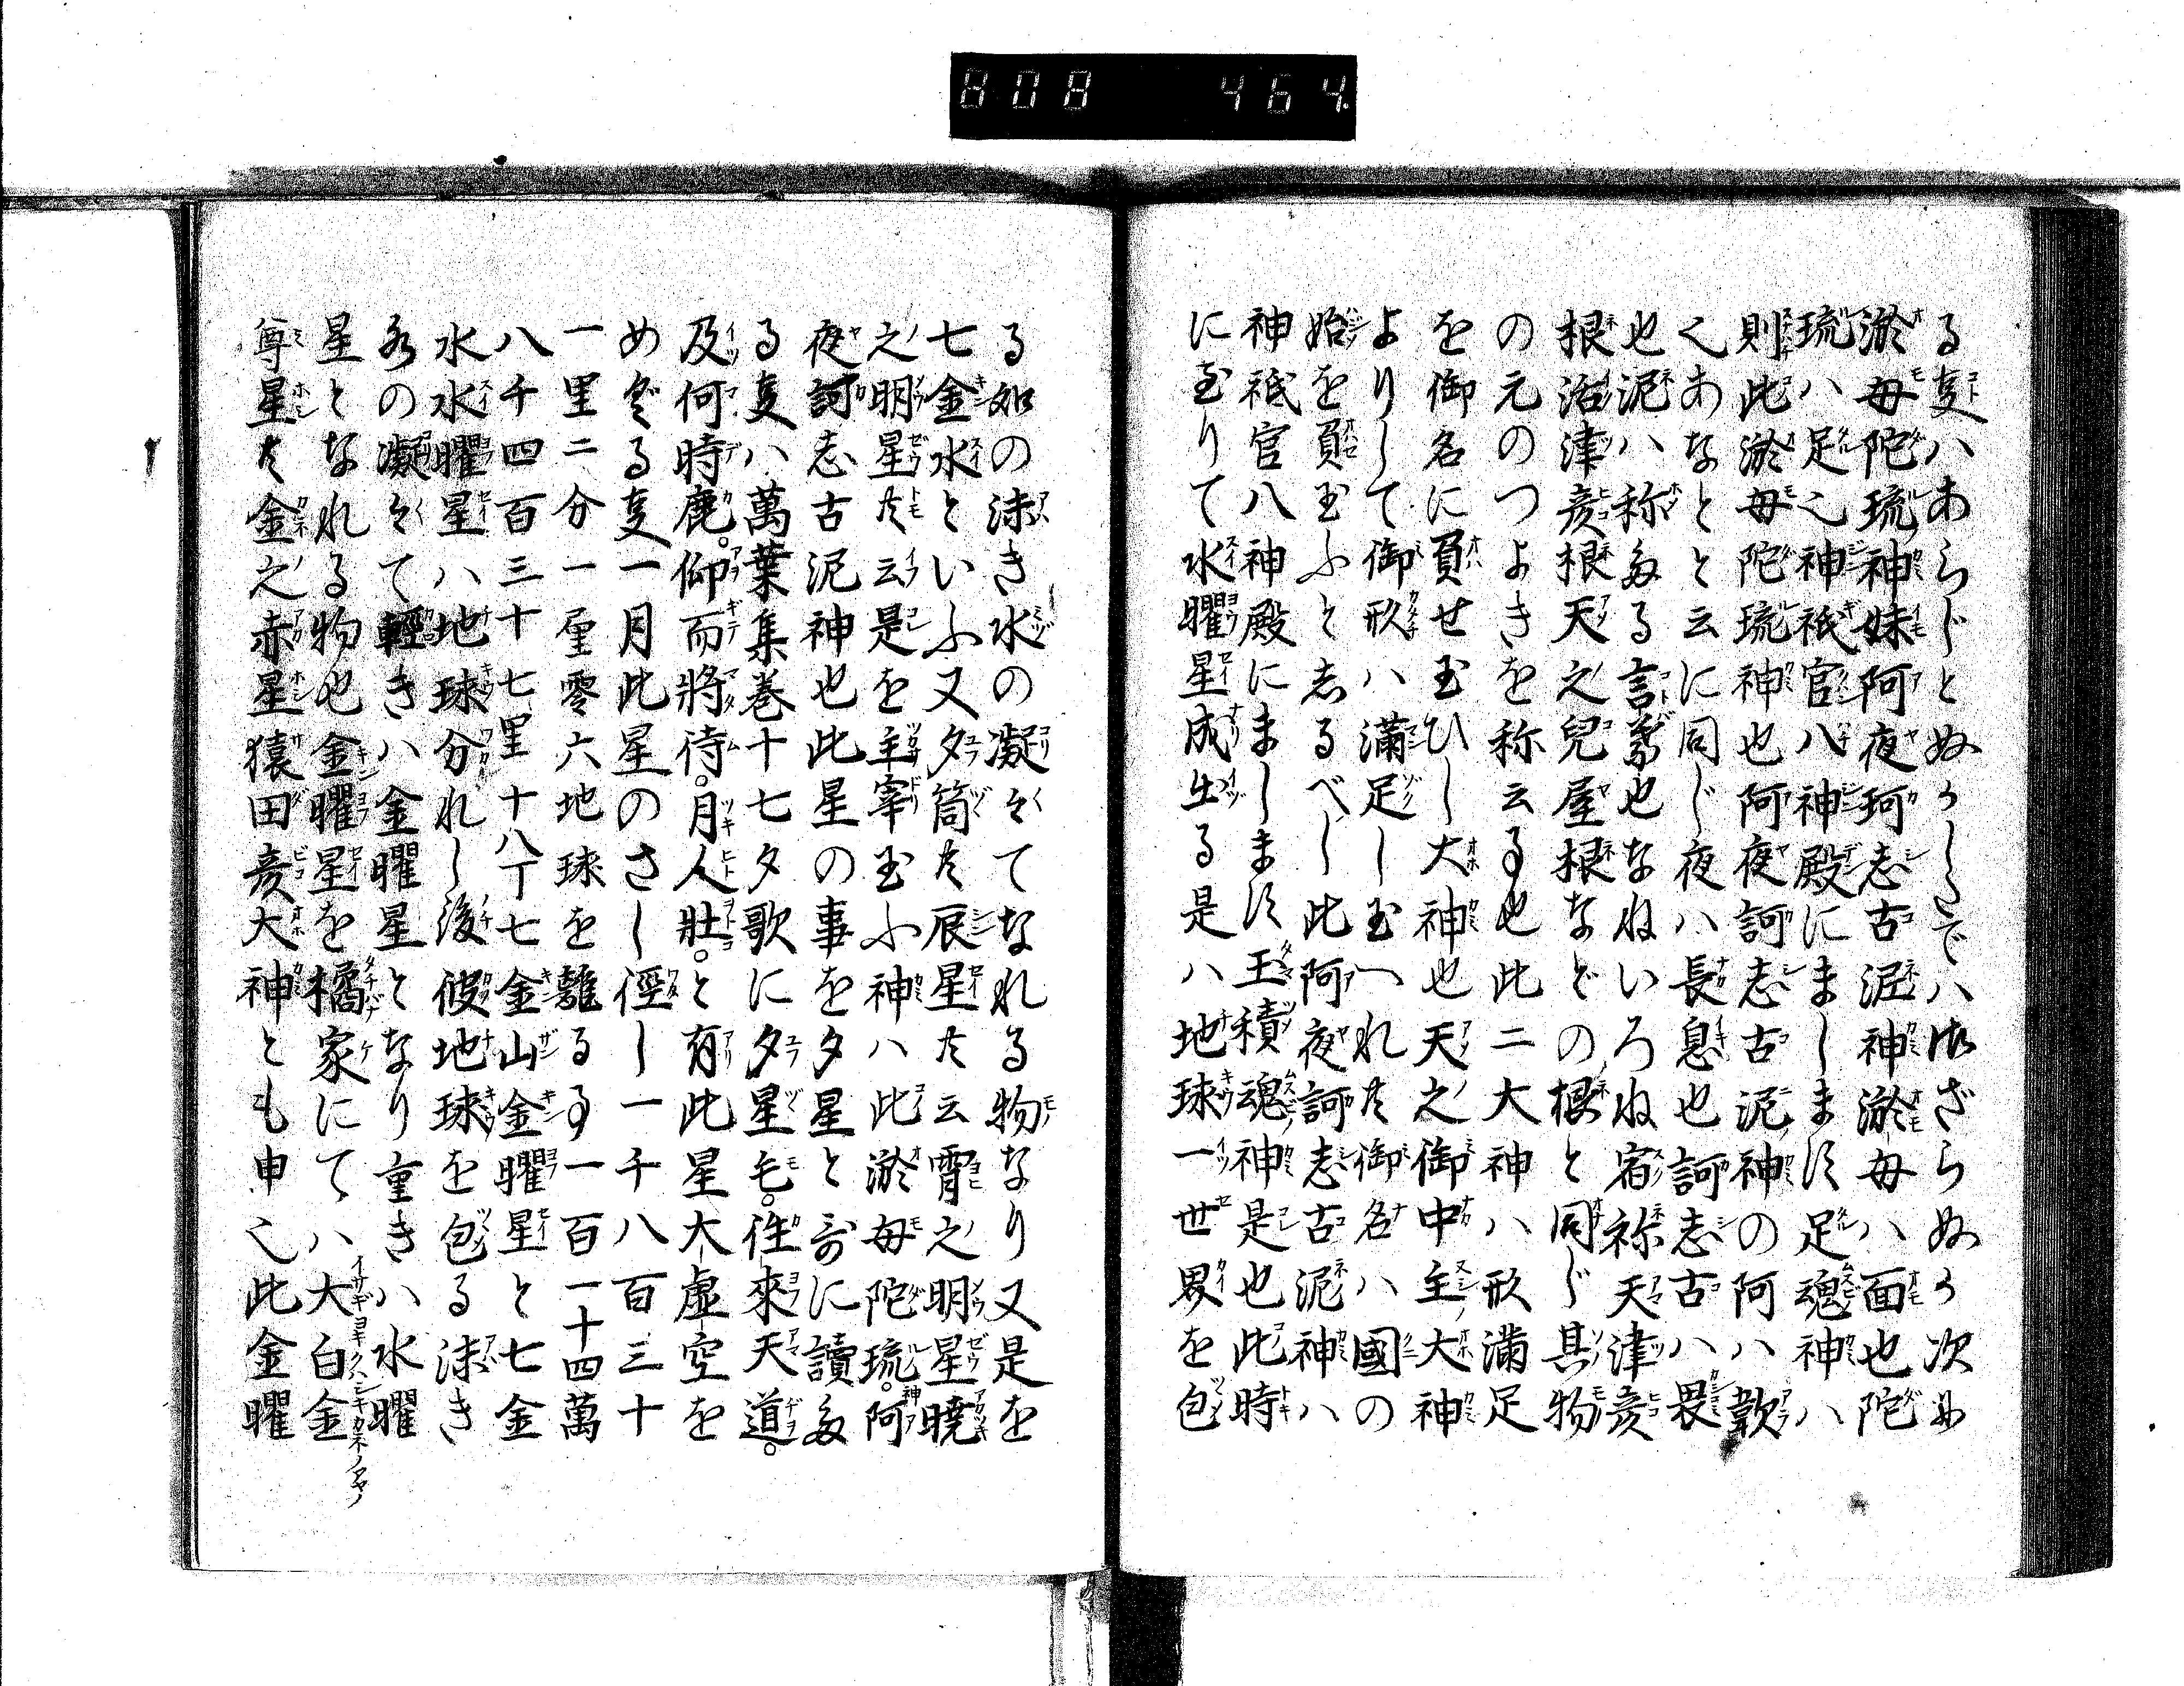 808 464.
る叓ハあらじとぬるしくでハはざらぬる次め
淤母陀琉神妹阿夜珂志古泥神淤母ハ面也陀
琉ハ足也神祇官八神殿にまします足魂神ハ
則此淤母陀琉神也阿夜訶志古泥神の阿ハ歎
くあなとと云に同じ夜ハ長息也訶志古ハ畏
也泥ハ称るる言葉也なねいろね宿祢天津彦
根活津彦根天之兒屋根などの根と同じ其物
の元のつよきを称云る也此二大神ハ形満足
を御名に負せ玉ひし大神也天之御中主大神
よりして御形ハ満足し玉へれ共御名ハ國の
始を負玉ふとしるべし此阿夜訶志古泥神ハ
神祇官八神殿にまします玉積魂神是也此時
に至りて水曜星成出る是ハ地球一世界を包
る如の沫き水の凝々てなれる物なり又是を
七金水といふ又夕筒共辰星共云霄之明星暁
之明星共云是を主宰玉ふ神ハ此淤母陀琉。阿
夜訶志古泥神也此星の事を夕星と哥に讀る
る叓ハ萬葉集巻十七夕歌に夕星毛。徃來天道。
及何時鹿。仰而將待。月人壯。と有此星大虚空を
めぐる叓一月此星のさし徑し一千八百三十
一里二分一厘零六地球を離るる一百一十四萬
八千四百三十七里十八丁七金山金曜星と七金
水水曜星ハ地球分れし後彼地球を包る沫き
水の凝々て輕きハ金曜星となり重きハ水曜
星となれる物也金曜星を橘家にてハ大白金
尊星共金之赤星猿田彦大神とも申也此金曜